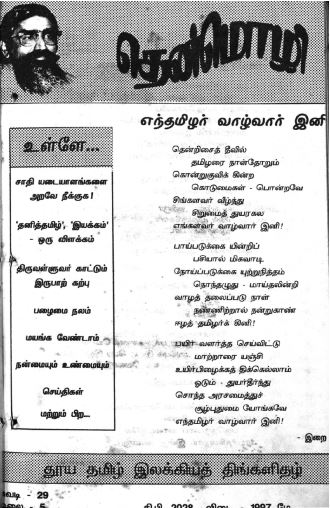 தென்மொழி
எந்தமிழர் வாழ்வார் இனி
உள்ளே...
சாதி யடையாளங்களை
அறவே நீக்குக!
'தனித்தமிழ்', 'இயக்கம்'
- ஒரு விளக்கம்
திருவள்ளுவர் காட்டும்
இருபாற் கற்பு
பழைமை நலம்
மயங்க வேண்டாம்
நன்மையும் உண்மையும்
செய்திகள்
மற்றும் பிற...
தென்றிசைத் தீவில்
தமிழரை நாள்தோறும்
கொன்றுகுவிக் கின்ற
கொடுமைகள் - பொன்றவே
சிங்களவர் வீழ்ந்து
சிறுமைத் துயரகல
எங்களவர் வாழ்வார் இனி!
பாய்படுக்கை யின்றிப்
பசியால் மிகவாடி
நோய்படுக்கை யுற்றுநித்தம்
நொந்தழுது - மாய்தலின்றி
வாழத் தலைப்படு நாள்
நண்ணிற்றால் நன்றுகாண்
ஈழத் தமிழர்க் கினி!
பயிர் வளர்த்த செய்விட்டு
மாற்றாரை யஞ்சி
உயிர்பிழைக்கத் திக்கெல்லாம்
ஓடும் - துயர்தீர்ந்து
சொந்த அரசமைத்துச்
சூழ்புதுமை யோங்கவே
எந்தமிழர் வாழ்வார் இனி!
- இறை
தூய தமிழ் இலக்கியத் திங்களிதழ்
சுவடி - 29
5
தி.பி 2028 விடை 1997 மே